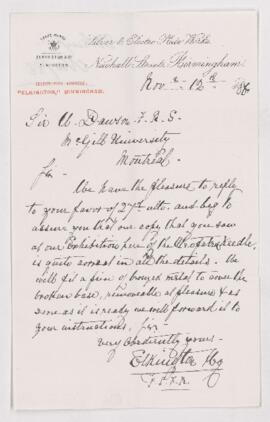 Silver & Electro Plate Works
Newhall Street, Birmingham
"ELKINGTON," BIRMINGHAM.
Nov 12th 1886
Sir W. Dawson F.R.S.
McGill University
Montreal
Sir
We have the pleasure to reply
to your favor of 27th ulto. and beg to
assure you that our copy that you saw
at our Exhibition here of the Cleopatra Needle,
is quite correct in all the details. We
will fix a piece of bronzed metal to cover the
broken base, removable at pleasure & as
soon as it is ready we will forward it to
your instructions,
Very obediently yours
Elkington & Co